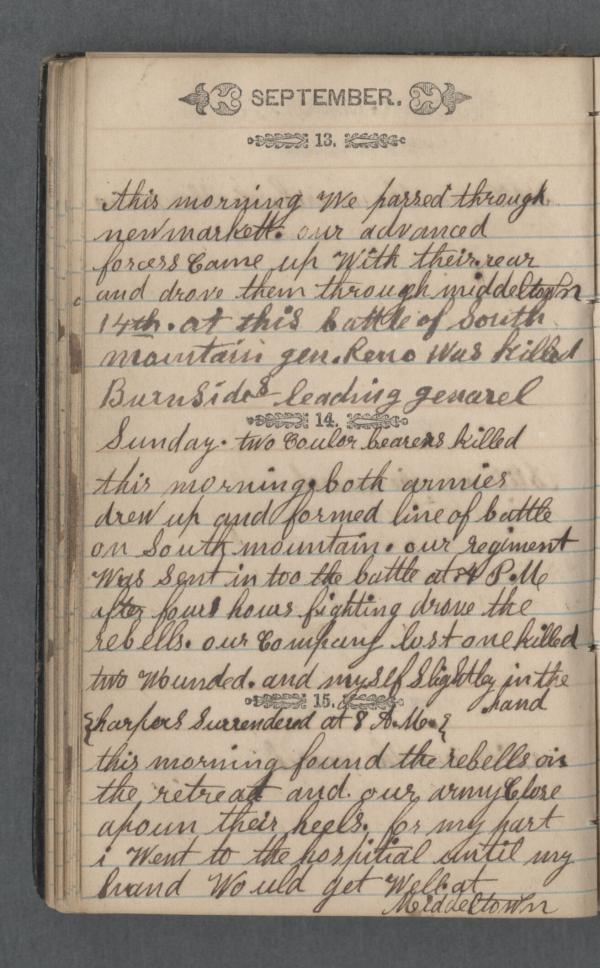 SEPTEMBER.
13.
this morning We passed through
newmarkett. our advanced
forcess Came up With their rear
and drove them through middeltown
14th. at this battle of South
mountain gen. Reno Was killed
Burnsides leading genarel
14.
Sunday. two Coulor bearers killed
this morning. both armies
drew up and formed line of battle
on South mountain. our regiment
Was Sent in too the battle at 4 P.M
after fours hours fighting drove the
rebells. our Company lost one killed
two Wounded. and myself Slightley in the
hand
15.
{harpers Surrendered at 8 A.M.}
this morning found the rebells on
the retreat and our army Close
apoun their heels. for my part
i Went to the hospitial until my
hand Would get Well. at
Middeltown